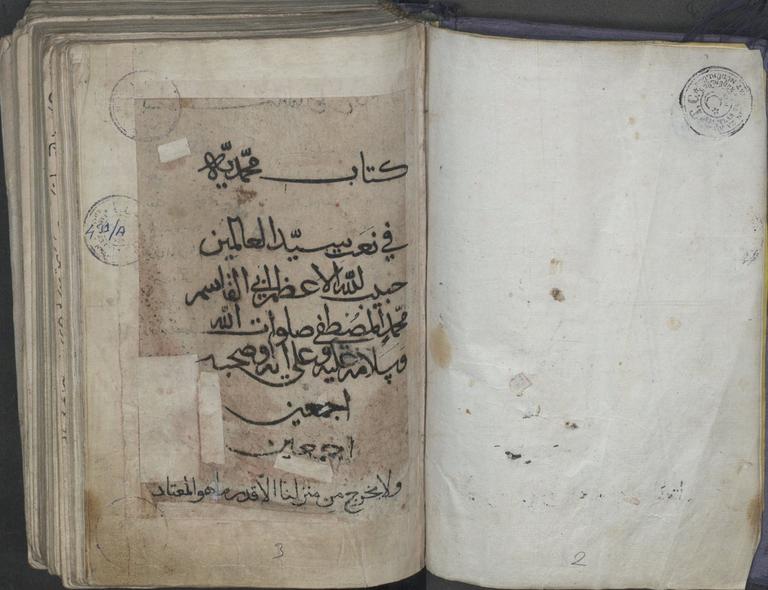 كتاب محمّديّة
في نَعت سيّد العالمين
حبيب الله الاعظم ابي القاسم
محمّد المصُطفي صلوات الله
وسلامه عليه وعلى آله وصحبه
اجمعين
اجمعين
ولا يخرج من منزلنا الا قدر ما هو المعتاد
491/A
3
2